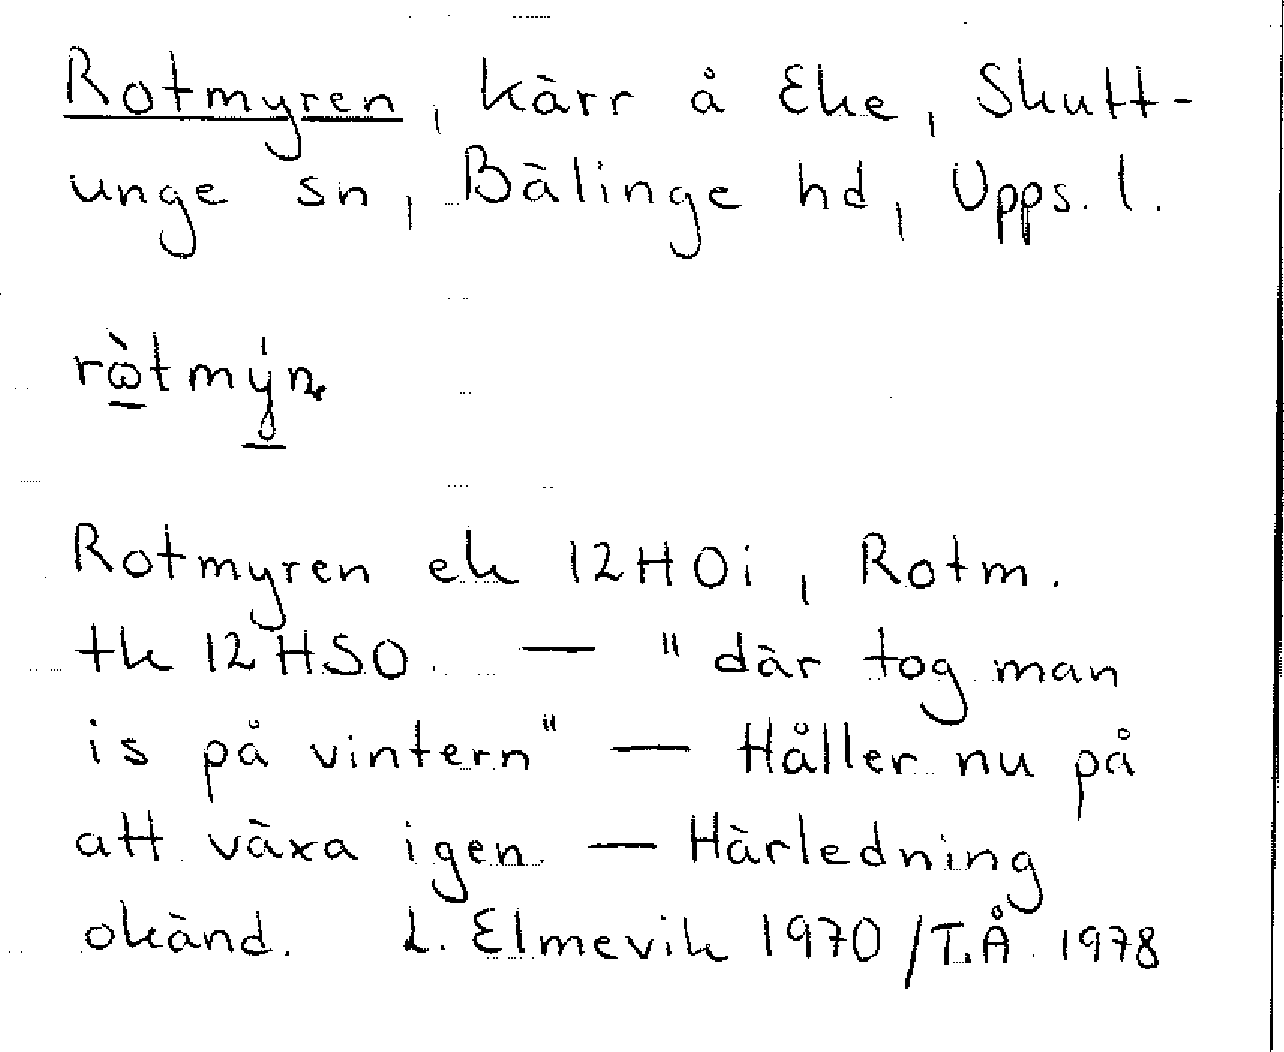 Rotmyren, kärr å Eke, Skutt-
unge sn, Bälinge hd, Upps. l.
Rotmyren ek 12H0i, Rotm.
tk 12HSO. — "där tog man
is på vintern" — Håller nu på
att växa igen — Härledning
okänd. L. Elmevik 1970/T.Å 1978